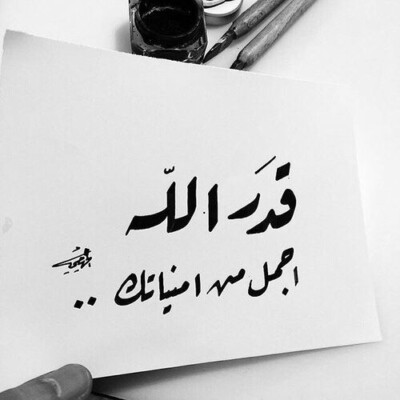 قدَر اللّه
اجمل من امنياتك ..